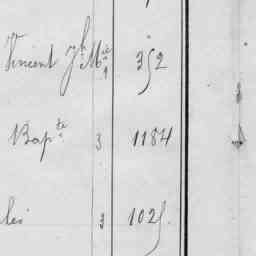 Vincent Jh Mie 9 352
Bapte 3 1184
les 2 1025